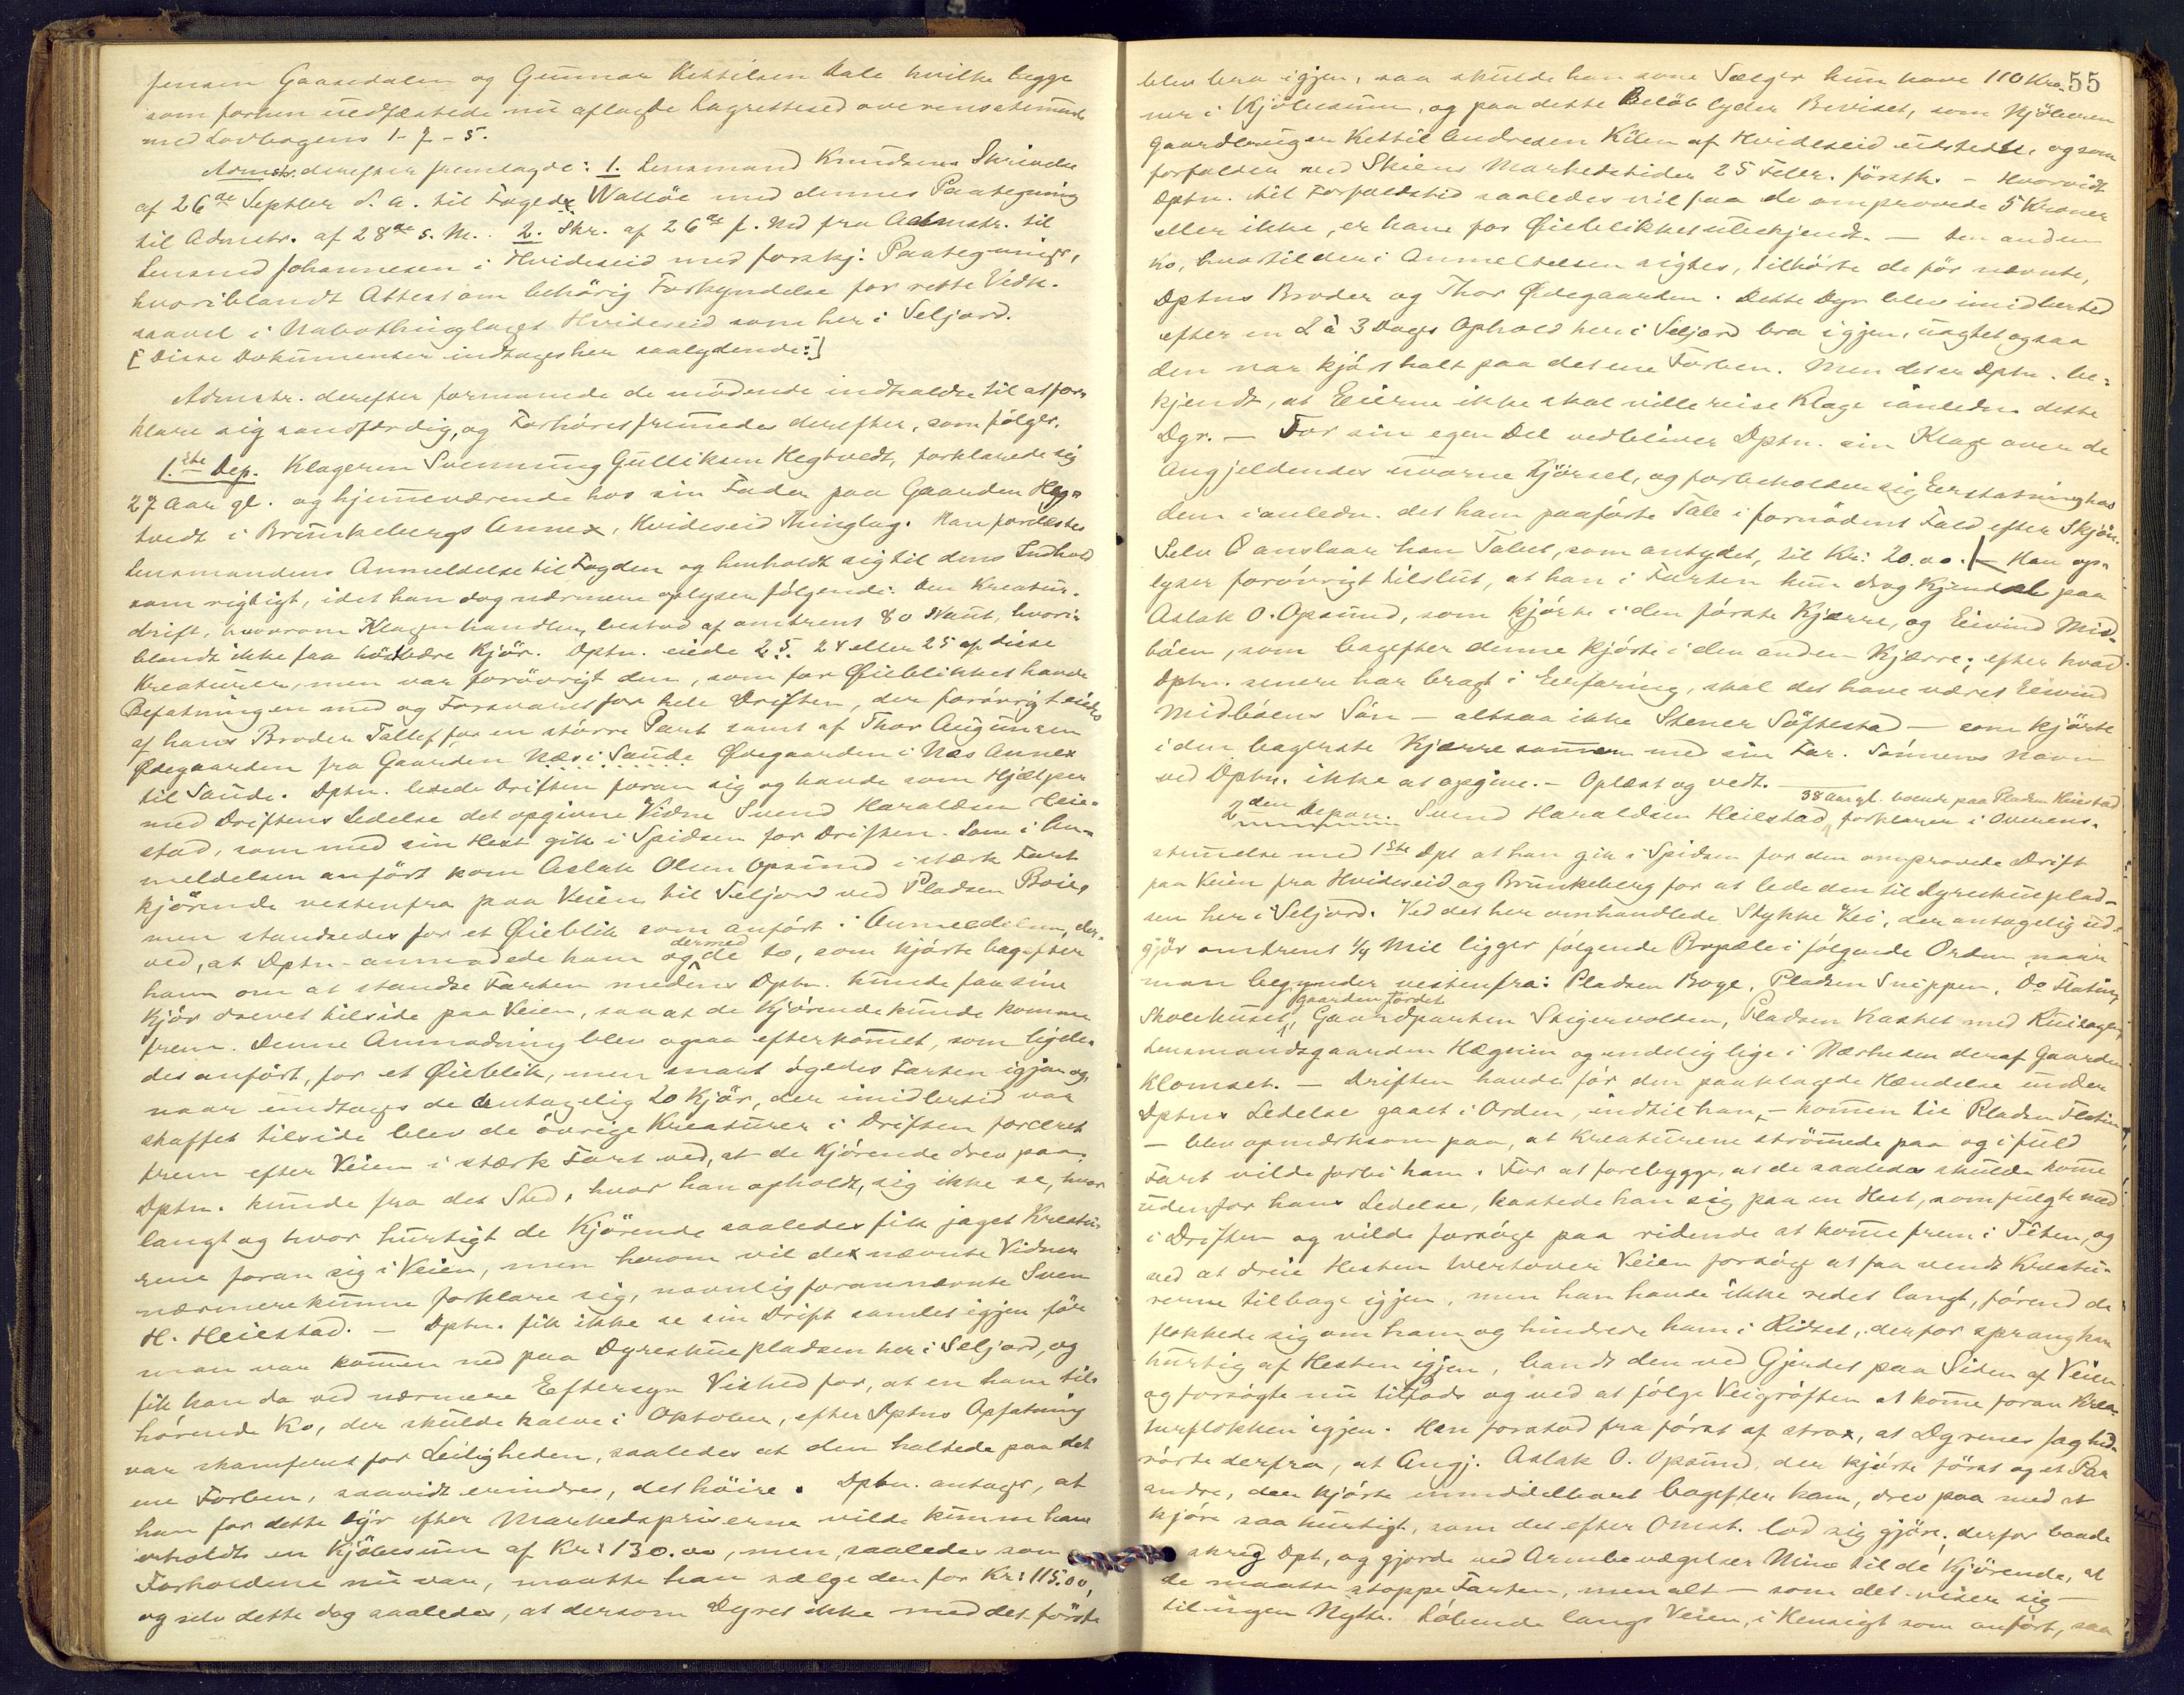 Jensen Gaasedalen og Gunnar Kettilsen Dale hvilke begge
som forhen uedfæstede nu aflagde Lagrettesed overensstemmende
med Lovbogens 1-7-5.
Admstr. derefter fremlagde: 1. Lensmand Knudsens Skrivelse
af 26de Septbr d. A. til Foged Walløe med dennes Paategning
til Admstr. af 28de s. M. 2. Skr. af 26de f. Md fra Admstr. til
Lensmd Johannesen i Hvideseid med forskj: Paategninger,
hvoriblandt Attest om behörig Forkyndelse for rette Vedk.
saavel i Nabothinglaget Hvideseid som her i Seljord.
[Disse Dokumenter indtages her saalydende:]
Admstr. derefter formanede de mödende indkaldte til at for-
klare sig sandfærdig, og Forhöret fremmedes derefter, som fölger.
1ste Dep. Klageren Svennung Gulliksen Hegtvedt, forklarede sig
27 Aar gl. og hjemmeværende hos sin Fader paa Gaarden Heg-
tvedt i Brunkebergs Annex, Hvideseid Thinglag. Han forelæstes
Lensmandens Anmeldelse til Fogden og henholdt sig til dens Indhold
som rigtigt, idet han dog nærmere oplyser fölgende: Den Kreatur-
drift, hvorom Klagen handler, bestod af omtrent 80 Naut, hvori-
blandt ikke faa höstbære Kjör. Dptn. eiede 25. 24 eller 25 af disse
Kreaturer, men var forövrigt den, som for Øieblikket havde
Befatningen med og Forsvaret for hele Driften, der forövrigt eiedes
af hans Broder Tallef for en större Part samt af Thor Augunsen
Ødegaarden fra Gaarden Næs i Saude Ødegaarden i Næs Annex
til Saude. Dptn. ledede Driften foran sig og havde som Hjælper
med Driftens Ledelse det opgivne Vidne Svend Haraldsen Heie-
stad, som med sin Hest gik i Spidsen for Driften. Som i An-
meldelsen anfört kom Aslak Olsen Opsund i stærk Fart
kjörende vestenfra paa Veien til Seljord ved Pladsen Boie,
men standsedes for et Øieblik som anfört i Anmeldelsen, der-
ved, at Dptn. anmodede ham og dermed de to, som kjörte bagefter
ham om at standse Farten medens Dptn. kunde faa sine
Kjör drevet tilside paa Veien, saa at de Kjörende kunde komme
frem. Denne Anmodning blev ogsaa efterkommet, som ligele-
des anfört, for et Øieblik, men snart ögedes Farten igjen og,
naar undtages de antagelig 20 Kjör, der imidlertid var
skaffet tilside blev de övrige Kreaturer i Driften forceret
frem efter Veien i stærk Fart ved, at de Kjörende drev paa.
Dptn. kunde fra det Sted, hvor han opholdt sig ikke se, hvor
langt og hvor hurtigt de Kjörende saaledes fik jaget Kreatu-
rene foran sig i Veien, men herom vil de nævnte Vidner
nærmere kunne forklare sig, navnlig forannævnte Sven
H. Heiestad. — Dptn. fik ikke se sin Drift samlet igjen för
man var kommen ned paa Dyreskuepladsen her i Seljord, og
fik han da ved nærmere Eftersyn Vished for, at en ham til-
hörende Ko, der skulde kalve i Oktober, efter Dptns Opfatning
var skamferet for Leiligheden, saaledes at den haltede paa det
ene Forben, saavidt erindres, det höire. Dptn. antager, at
han for dette Dyr efter Markedspriserne vilde kunne have
erholdt en Kjöbesum af Kr: 130.00, men, saaledes som
Forholdene nu var, maatte han sælge den for Kr: 115.00,
og selv dette dog saaledes, at dersom Dyret ikke med det förste
55
blev bra igjen, saa skulde han som Sælger kun have 110 Kro-
ner i Kjöbesum, og paa dette Belöb lyder Beviset, som Kjöberen
Gaardbruger Kettil Andresen Kilen af Hvideseid udstedte, og som
forfalder ved Skiens Markedstider 25 Febr. förstk. — Hvorvidt
Dptn. til Forfaldstid saaledes vil faa de omprovede 5 Kroner
eller ikke, er ham for Øieblikket ubekjendt. — Den anden
Ko, hvortil der i Anmeldelsen sigtes, tilhörte de för nævnte,
Dptns Broder og Thor Ødegaarden. Dette Dyr blev imidlertid
efter en 2 à 3 Dages Ophold her i Seljord bra igjen, uagtet ogsaa
den var kjört halt paa det ene Forben. Men det er Dptn. be-
kjendt, at Eierne ikke skal ville reise Klage ianledn. dette
Dyr. — For sin egen Del vedbliver Dptn. sin Klage over de
Angjeldendes uvorne Kjörsel, og forbeholder sig Erstatning hos
dem ianledn. det ham paaförte Tab i fornödent Fald efter Skjön.
Selv anslaar han Tabet, som antydet, til Kr: 20.00. — Han op-
lyser forövrigt tilslut, at han i Farten kun drog Kjendsel paa
Aslak O. Opsund, som kjörte i den förste Kjærre, og Eivind Mid-
böen, som bagefter denne kjörte i den anden Kjærre; efter hvad
Dptn. senere har bragt i Erfaring, skal det have været Eivind
Midböens Sön — altsaa ikke Stener Söftestad — som kjörte
i den bagerste Kjærre sammen med sin Far. Sönnens Navn
ved Dptn. ikke at opgive. — Oplæst og vedt. —
38 Aar gl. boende paa Pladsen Heiestad
2den Depon. Svend Haraldsen Heiestad, forklarer i Overens-
stemmelse med 1ste Dpt at han gik i Spidsen for den omprovede Drift
paa Veien fra Hvideseid og Brunkeberg for at lede den til Dyreskueplad-
sen her i Seljord. Ved det her omhandlede Stykke Vei, der antagelig ud-
gjör omtrent 1/4 Mil ligger fölgende Bopæle i fölgende Orden naar
man begynder vestenfra: Pladsen Boye, Pladsen Snippen, Do Flatin,
Skolehuset, gaarden Fördet Gaardparten Steigervolden, Pladsen Kastet med
Lensmandsgaarden Hægnin og endelig lige i Nærheden deraf Gaarden
Klomset. — Driften havde för den paaklagede Hændelse under
Dptns Ledelse gaaet i Orden, indtil han, — kommen til Pladsen Flatin
— blev opmærksom paa, at Kreaturene strömmede paa og i fuld
Fart vilde forbi ham. For at forebygge, at de saaledes skulde komme
udenfor hans Ledelse, kastede han sig paa en Hest, som fulgte med
i Driften og vilde forsöge paa ridende at komme frem i Têten, og
ved at dreie Hesten tvertover Veien forsöge at faa vendt Kreatu-
rerne tilbage igjen, men han havde ikke redet langt, förend de
flokkede sig om ham og hindrede ham i Ridtet, derfor sprang han
hurtig af Hesten igjen, bandt den ved Gjerdet paa Siden af Veien
og forsögte nu tilfods og ved at fölge Veigröften at komme foran Krea-
turflokken igjen. Han forstod fra först af strax, at Dyrenes Jag hid-
rörte derfra, at Angj. Aslak O. Opsund, der kjörte först og et Par
andre, der kjörte umiddelbart bagefter ham, drev paa med at
kjöre saa hurtigt, som det efter Omst. lod sig gjöre; derfor baade
skreg Dpt, og gjorde ved Armbevægelser Mine til de Kjörende, at
de maatte stoppe Farten, men alt — som det viser sig —
til ingen Nytte. Löbende langs Veien, i Hensigt som anfört, saa